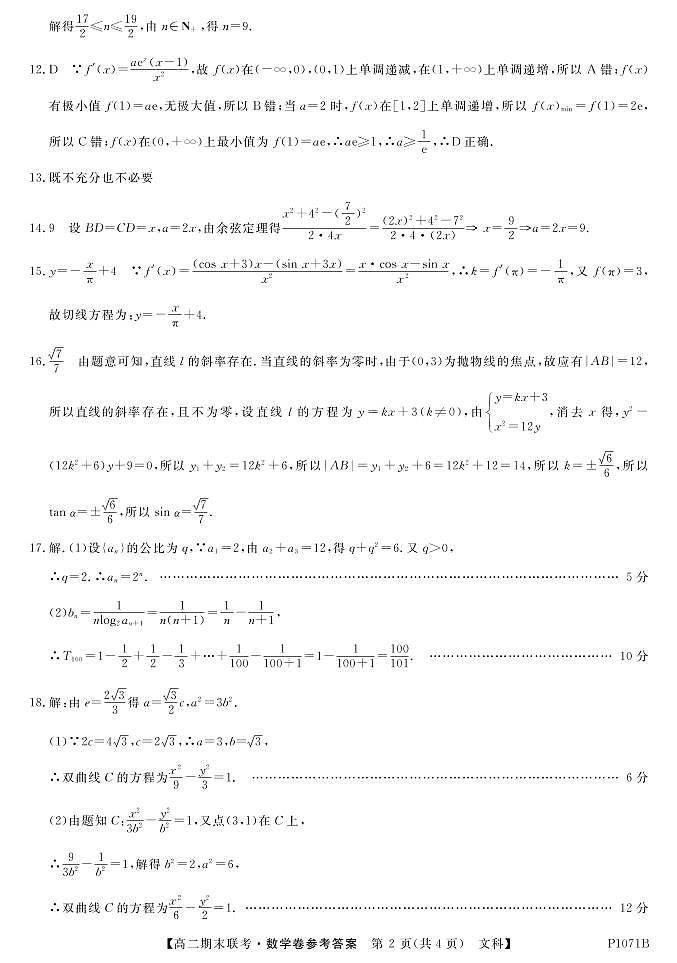 解得17/2≤n≤19/2,由 n∈N₊,得 n=9.
12.D ∵f′(x)=aeˣ(x−1)/x²,故 f(x)在(−∞,0),(0,1)上单调递减,在(1,+∞)上单调递增,所以 A 错;f(x)
有极小值 f(1)=ae,无极大值,所以 B 错;当 a=2 时,f(x)在[1,2]上单调递增,所以 f(x)min=f(1)=2e,
所以 C 错;f(x)在(0,+∞)上最小值为 f(1)=ae,∴ae≥1,∴a≥1/e,∴D 正确.
13.既不充分也不必要
14.9 设 BD=CD=x,a=2x,由余弦定理得(x²+4²−(7/2)²)/(2·4x)=((2x)²+4²−7²)/(2·4·(2x))⇒ x=9/2⇒a=2x=9.
15.y=−x/π+4 ∵f′(x)=((cos x+3)x−(sin x+3x))/x²=(x·cos x−sin x)/x²,∴k=f′(π)=−1/π,又 f(π)=3,
故切线方程为:y=−x/π+4.
16.√7/7 由题意可知,直线 l 的斜率存在.当直线的斜率为零时,由于(0,3)为抛物线的焦点,故应有|AB|=12,
所以直线的斜率存在,且不为零,设直线 l 的方程为 y=kx+3(k≠0),由{y=kx+3 x²=12y,消去 x 得,y²−
(12k²+6)y+9=0,所以 y₁+y₂=12k²+6,所以|AB|=y₁+y₂+6=12k²+12=14,所以 k=±√6/6,所以
tan α=±√6/6,所以 sin α=√7/7.
17.解.(1)设{aₙ}的公比为 q,∵a₁=2,由 a₂+a₃=12,得 q+q²=6.又 q>0,
∴q=2.∴aₙ=2ⁿ. …… 5 分
(2)bₙ=1/(nlog₂aₙ₊₁)=1/(n(n+1))=1/n−1/(n+1),
∴T₁₀₀=1−1/2+1/2−1/3+…+1/100−1/(100+1)=1−1/(100+1)=100/101. …… 10 分
18.解:由 e=2√3/3得 a=√3/2c,a²=3b².
(1)∵2c=4√3,c=2√3,∴a=3,b=√3,
∴双曲线 C 的方程为x²/9−y²/3=1. …… 6 分
(2)由题知 C:x²/3b²−y²/b²=1,又点(3,1)在 C 上,
∴9/3b²−1/b²=1,解得 b²=2,a²=6,
∴双曲线 C 的方程为x²/6−y²/2=1. …… 12 分
【高二期末联考·数学卷参考答案 第 2 页(共 4 页) 文科】 P1071B